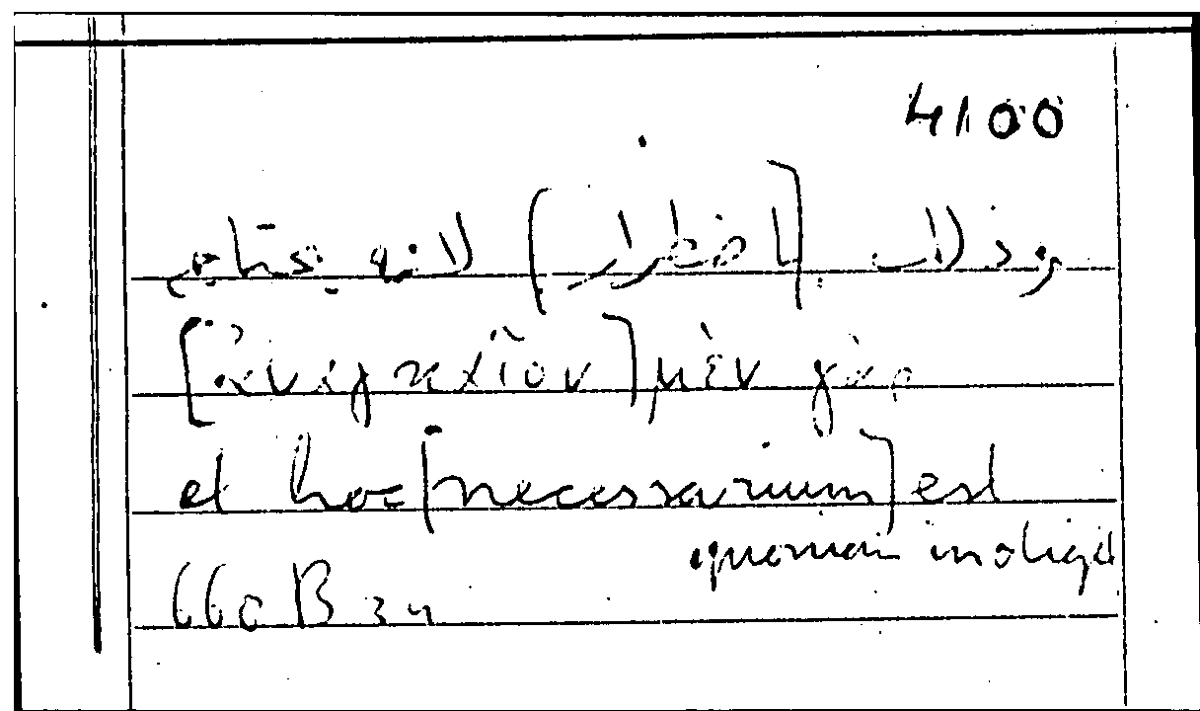 4100
وذلك [باضطرار] لانه يحتاج
[ἀναγκαῖον] μὲν γὰρ
et hoc [necessarium] est
quoniam indiget
660 B 34